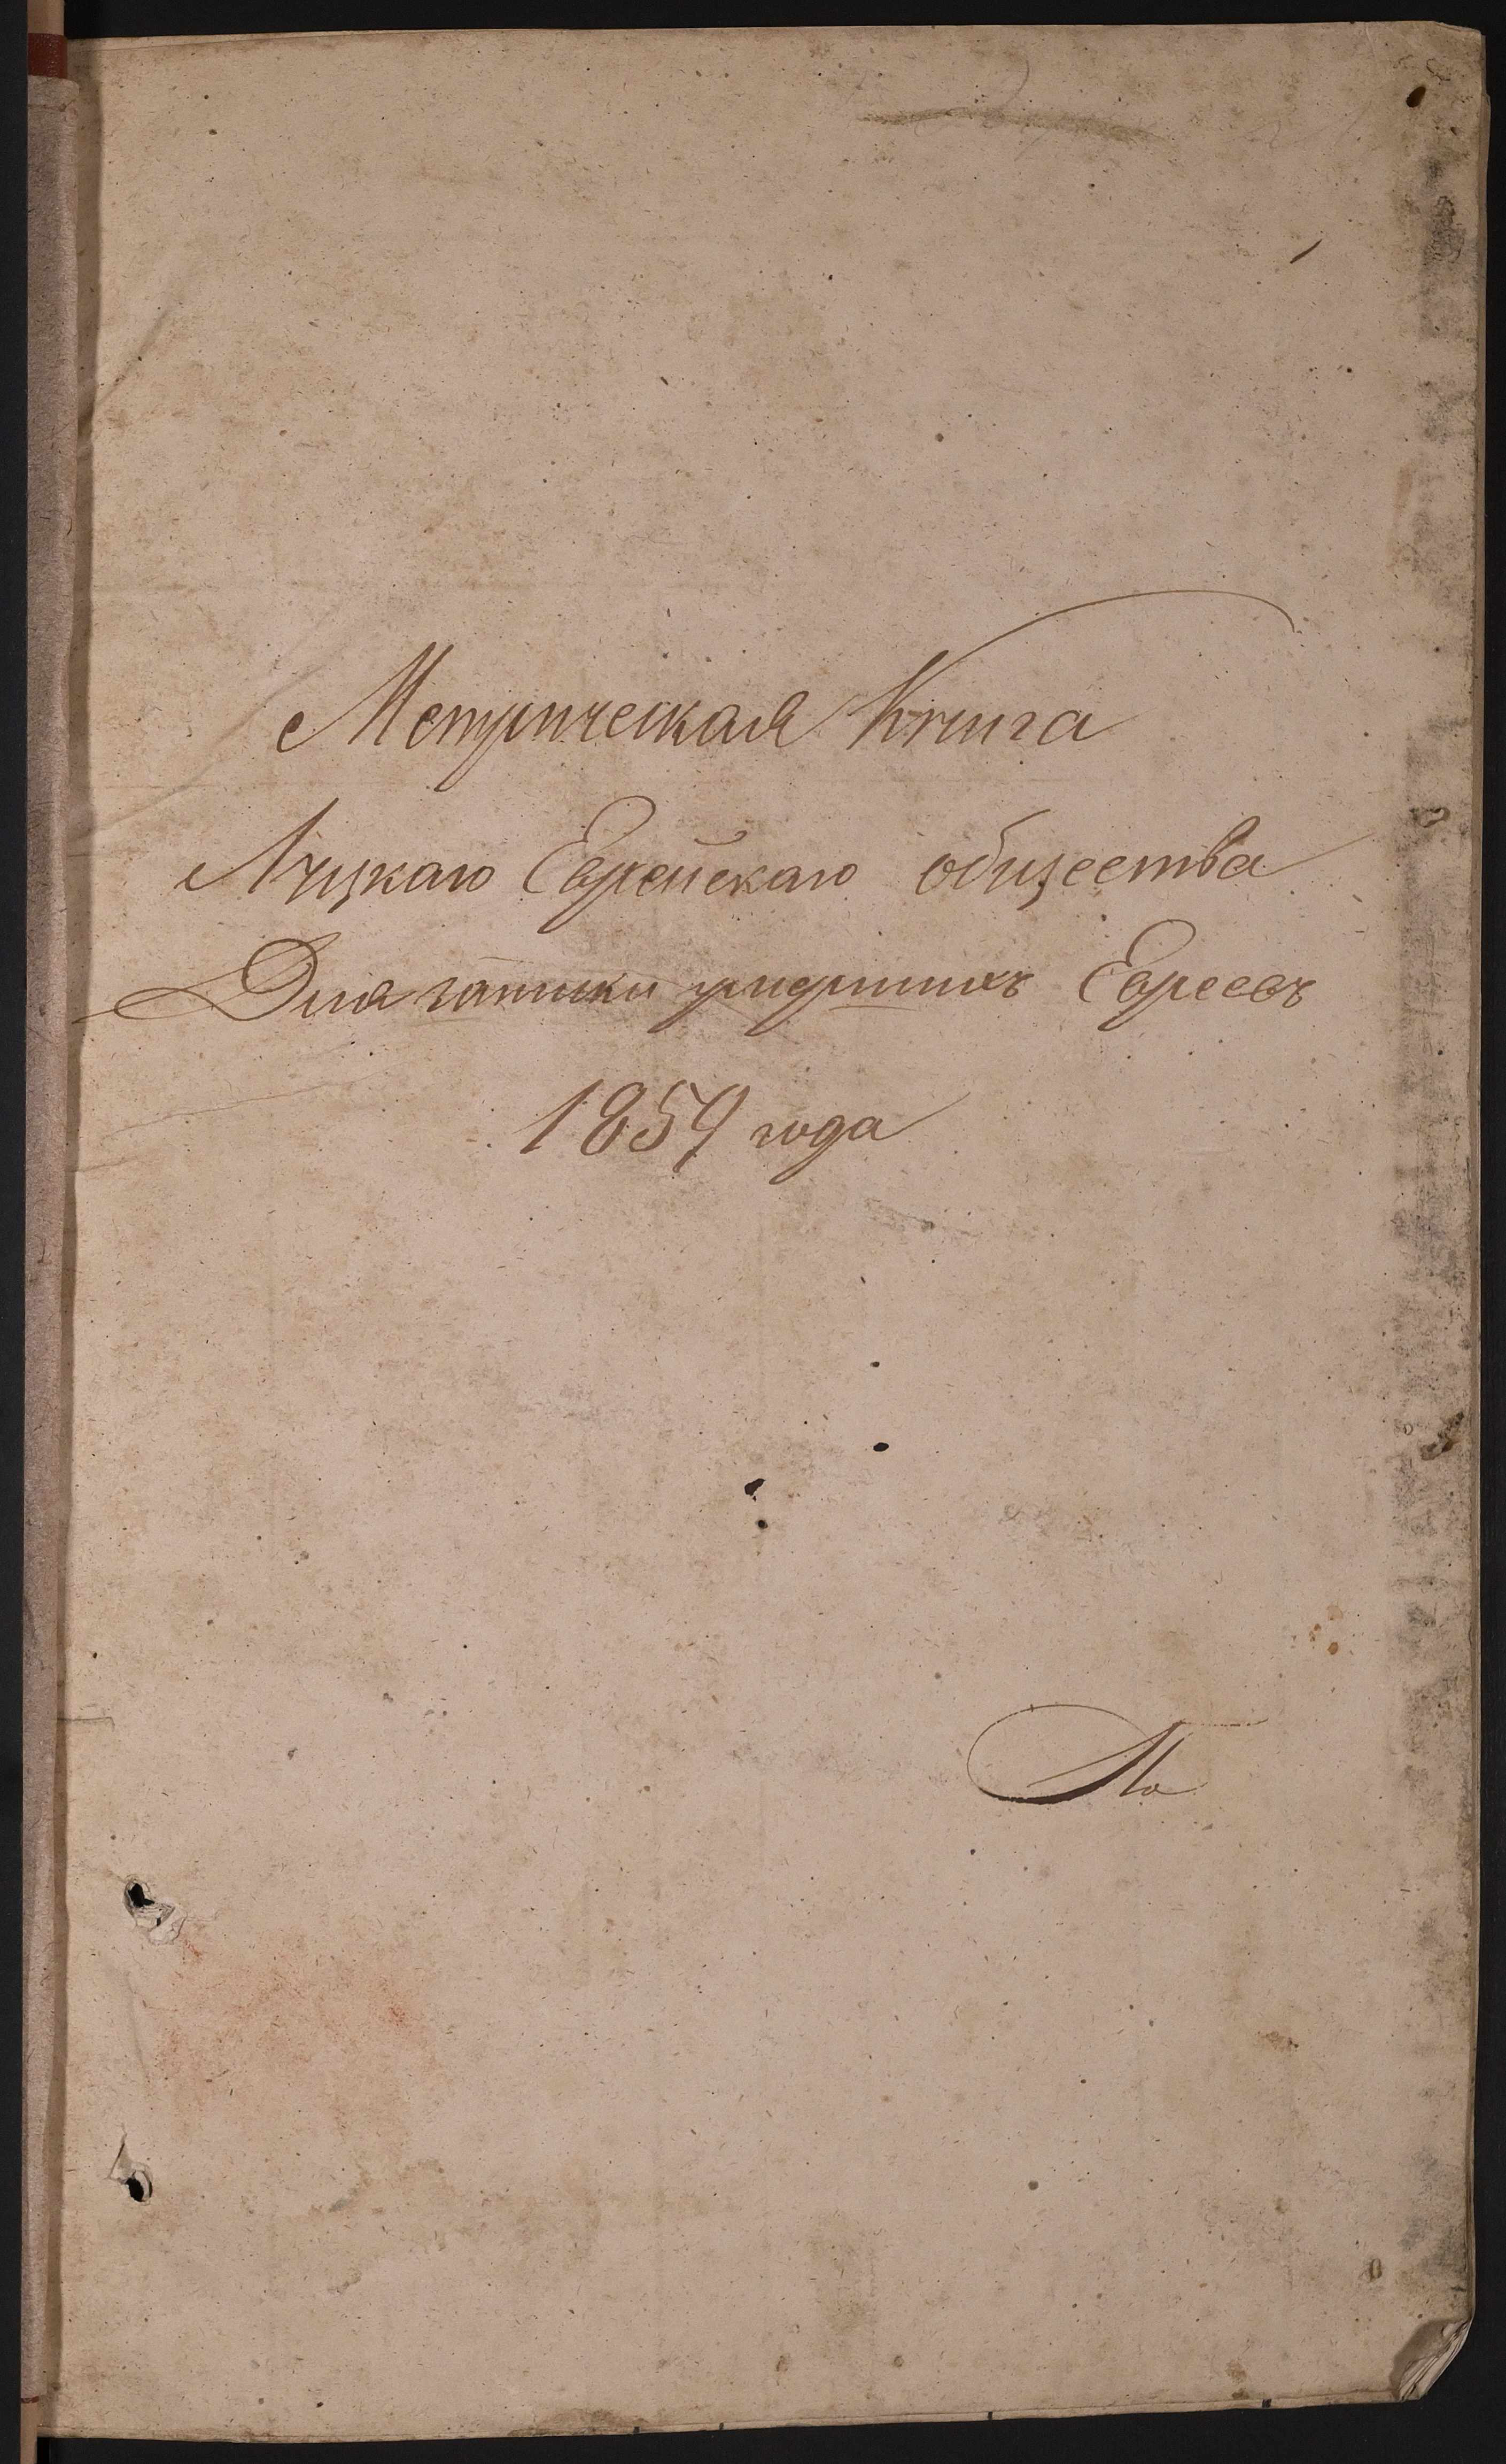 1
Метрическая Книга
Луцкаго Еврейскаго общества
Для записки умершихъ Евреевъ
1859 года
По